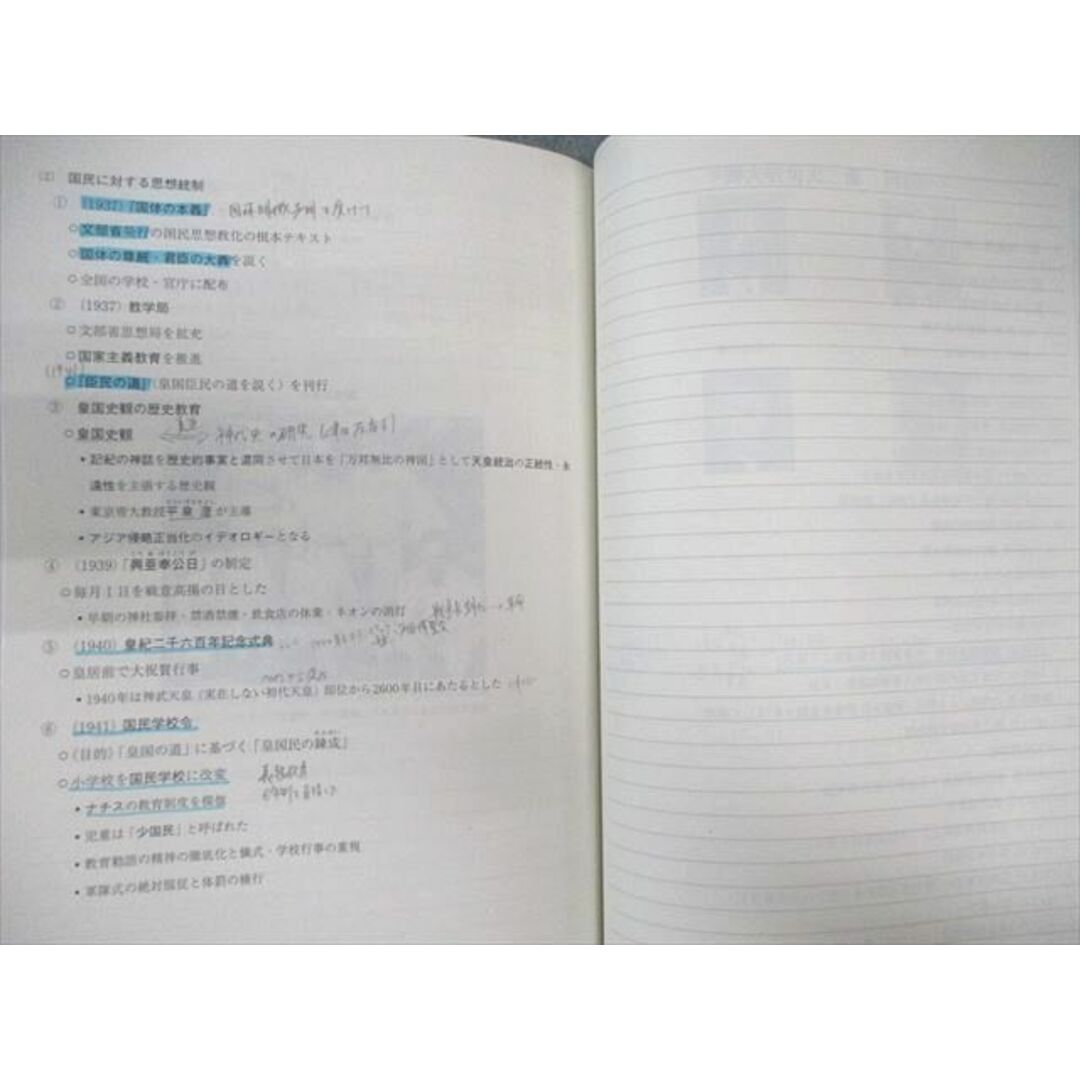 国民に対する思想統制
① (1937)『国体の本義』
○文部省発行の国民思想教化の根本テキスト
○国体の尊厳・君臣の大義を説く
○全国の学校・官庁に配布
② (1937) 教学局
○文部省思想局を拡充
○国家主義教育を推進
○『臣民の道』(皇国臣民の道を説く) を刊行
③ 皇国史観の歴史教育
○皇国史観
・記紀の神話を歴史的事実と混同させて日本を「万邦無比の神国」として天皇統治の正統性・永
遠性を主張する歴史観
・東京帝大教授平泉澄が主導
・アジア侵略正当化のイデオロギーとなる
④ (1939)「興亜奉公日」の制定
○毎月1日を戦意高揚の日とした
・早朝の神社参拝・禁酒禁煙・飲食店の休業・ネオンの消灯
⑤ (1940) 皇紀二千六百年記念式典
○皇居前で大祝賀行事
・1940年は神武天皇(実在しない初代天皇)即位から2600年目にあたるとした
⑥ (1941) 国民学校令
○(目的)「皇国の道」に基づく「皇国民の錬成」
○小学校を国民学校に改変
・ナチスの教育制度を模倣
・児童は「少国民」と呼ばれた
・教育勅語の精神の徹底化と儀式・学校行事の重視
・軍隊式の絶対服従と体罰の横行